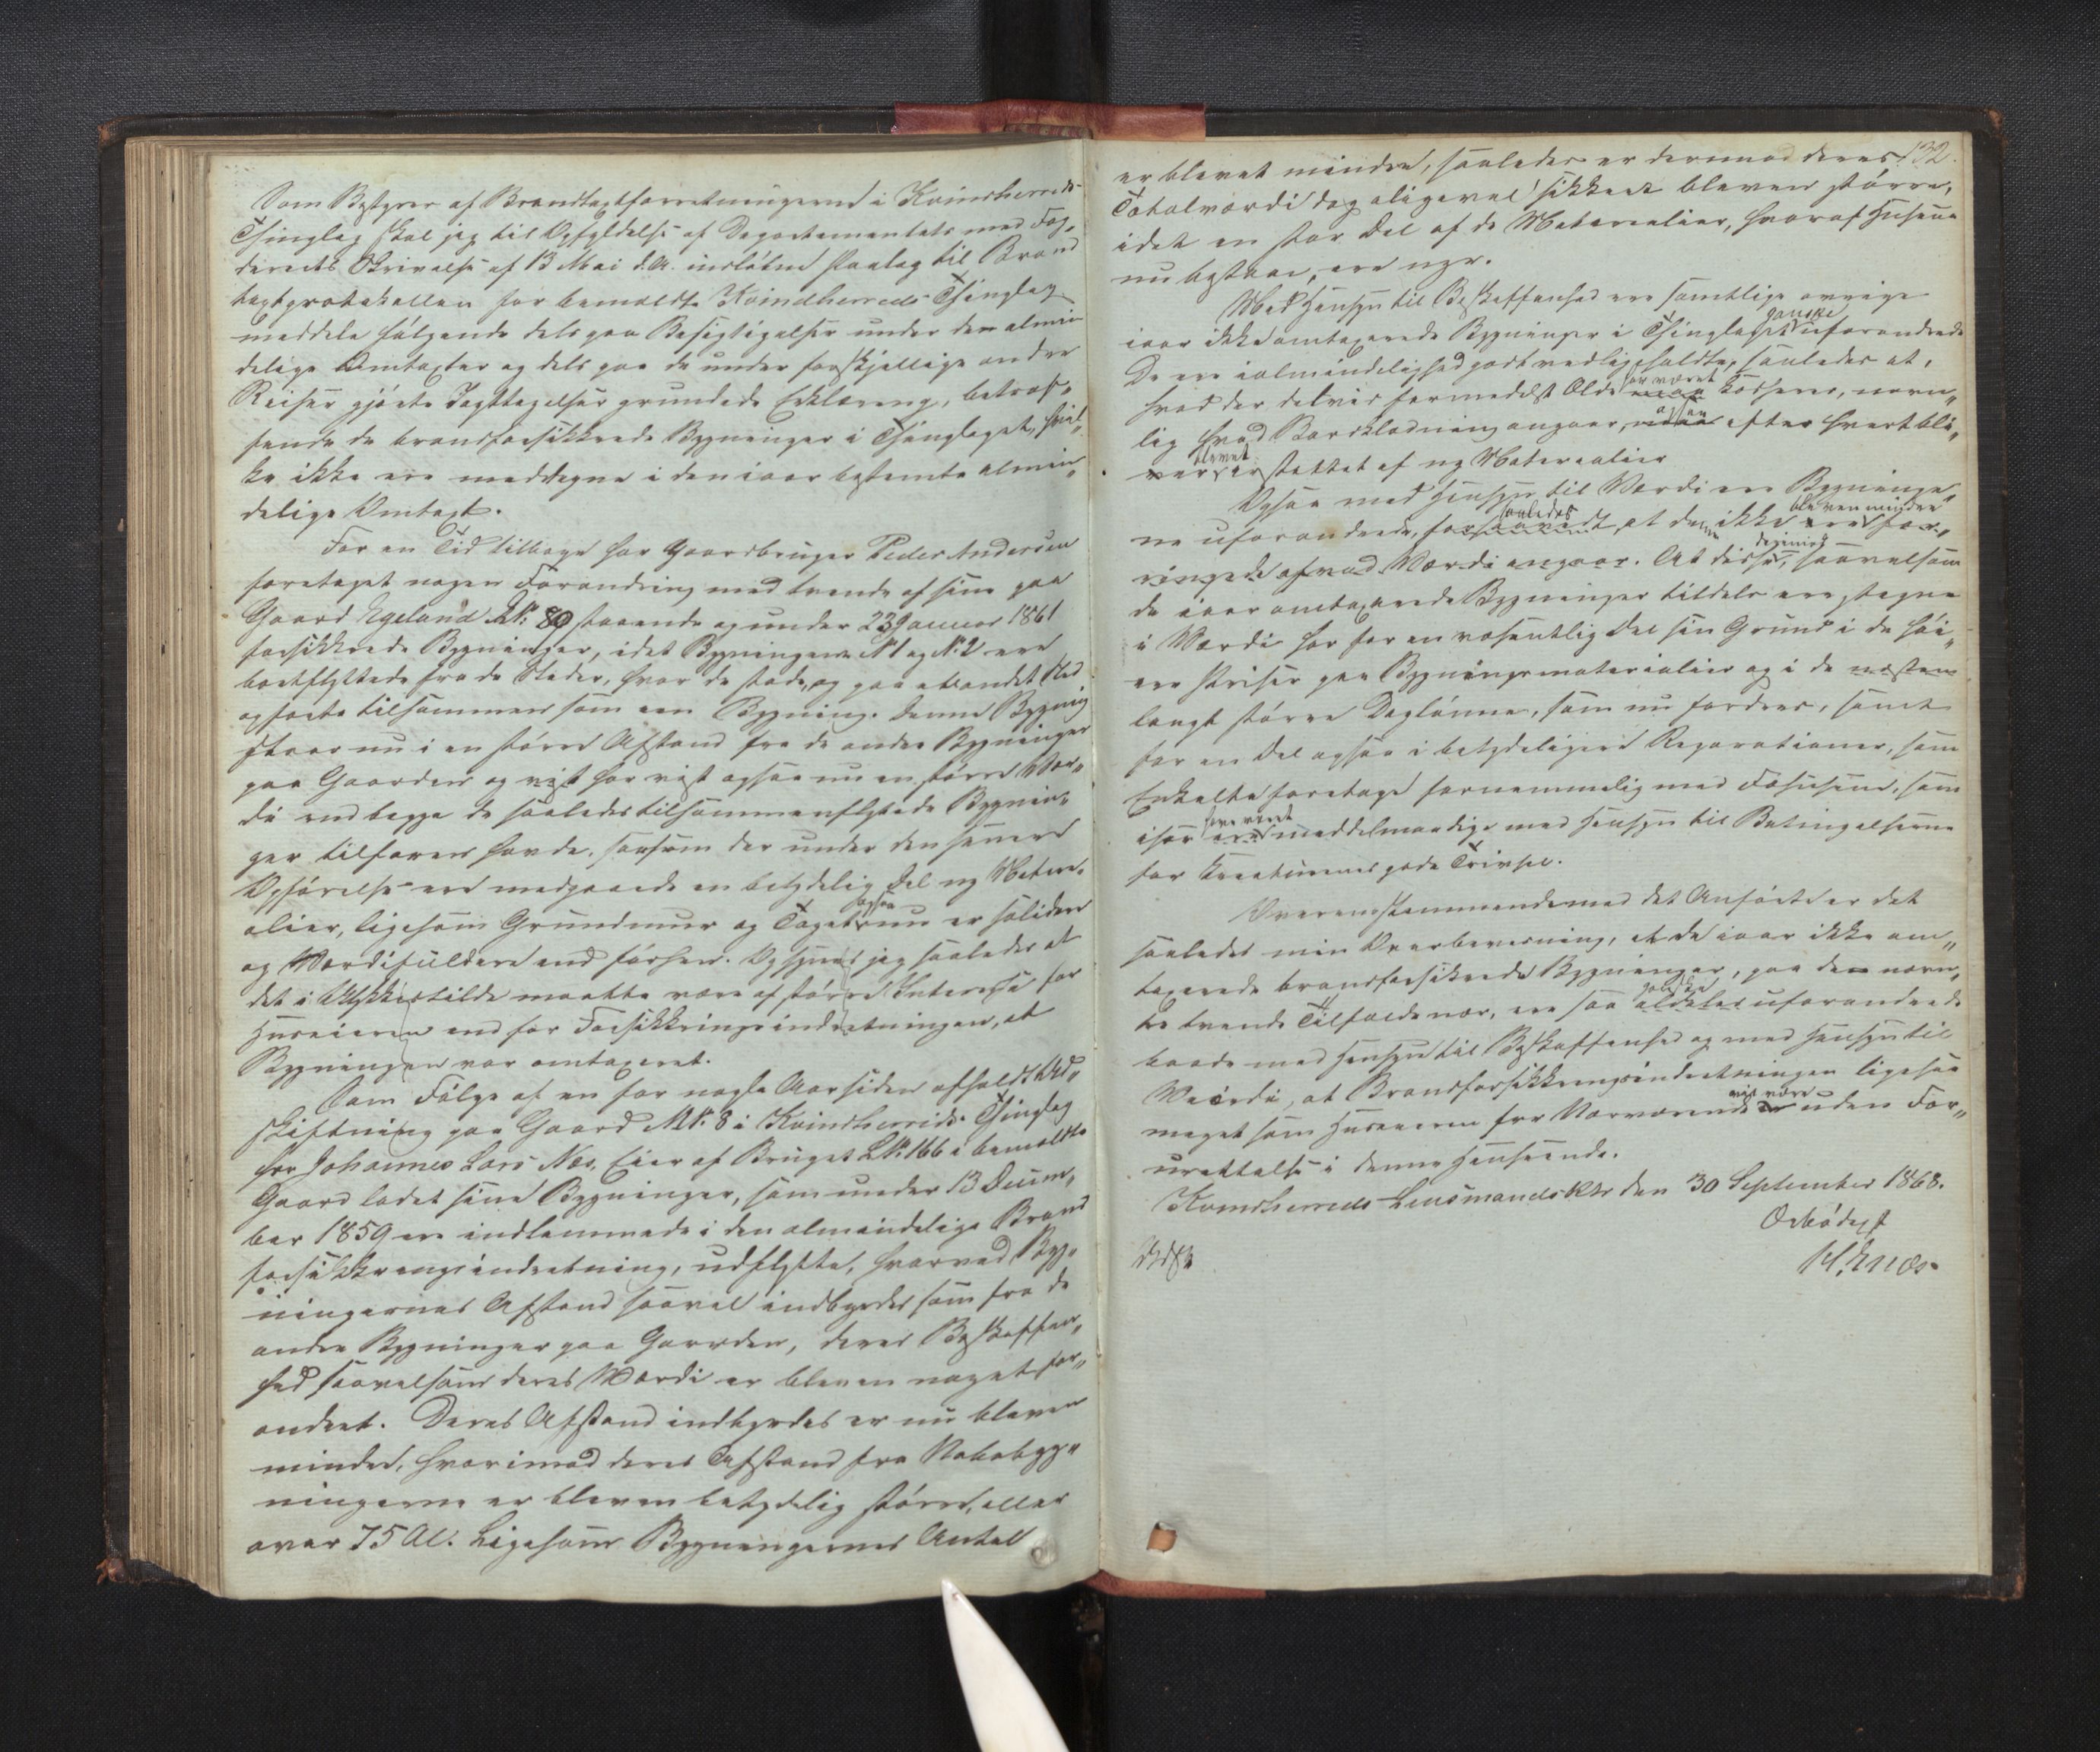 Som Bestyrer af Brandtaxtforretningerne i Kvindherreds
Thinglag skal jeg til Opfyldelse af Departementets med Fog„
deriets Skrivelse af 13 Mai d.A. indløbne Paalæg til Brand
taxtprotokollen for bemeldte Kvindherreds Thinglag
meddele følgende dels paa Besigtigelser under den almin
delige Omtaxter og dels paa de under forskjellige andre
Reiser gjorte Iagttagelser grundede Erklæring, betræf„
fende de brandforsikkrede Bygninger i Thinglaget, hvil„
ke ikke ere medtagne i den iaar bestemte almin„
delige Omtaxt.
For en Tid tilbage har Gaardbruger Peder Andersen
foretaget nogen Forandring med tvende af sine paa
Gaard Egeland M№ 80 staaende og under 23 Januar 1861
forsikkrede Bygninger, idet Bygningerne N. 1 og N. 2 ere
bortflyttede fra de Steder, hvor de stode, og paa et andet Sted
opførte tilsammen som een Bygning. Denne Bygning
staar nu i en større Afstand fra de andre Bygninger
paa Gaarden og vist har vist ogsaa nu en større Vær„
di end begge de saaledes tilsammenflyttede Bygnin„
ger tilforn havde, saasom der under den senere
Opførelse ere medgaaede en betydelig Del ny Materi„
alier, ligesom Grundmur og Taget ogsaa nu er solidere
og Værdifuldere end forhen. Og synes jeg saaledes at
det i Ulykkestilfælde maatte være af større Interesse for
Huseieren end for Forsikkringsindretningen, at
Bygningen var omtaxeret.
Som Følge af en for nogle Aar siden afholdt Ud„
skiftning paa Gaard M№ 8 i Kvindherreds Thinglag
har Johannes Lars Næs, Eier af Bruget L№ 166 i bemeldte
Gaard ladet sine Bygninger, som under 13 Decem„
ber 1859 ere indlemmede i den almindelige Brand
forsikkringsindretning, udflytte, hvorved Byg„
ningernes Afstand saavel indbyrdes som fra de
andre Bygninger paa Gaarden, deres Beskaffen„
hed saavelsom deres Værdi er bleven noget for„
andret. Deres Afstand indbyrdes er nu bleven
mindre, hvorimod deres Afstand fra Nabobyg„
ningerne er bleven betydelig større, eller
over 75 Al. Ligesom Bygningernes Antal
132.
er blevet mindre, saaledes er dermed deres
Totalværdi dog aligevel sikkert bleven større,
idet en stor Del af de Materialier, hvoraf Husene
nu bestaae, ere nye.
Med Hensyn til Beskaffenhed ere samtlige øvrige
iaar ikke omtaxerede Bygninger i Thinglaget ganske uforandrede
De ere i almindelighed godt vedligeholdte, saaledes at,
hvad der delvis formedelst Ælde har været kassere, navn„
lig hvad Bordklædning angaar, ogsaa efter hvert bli„
ver blevet erstattet af ny Materialier
Ogsaa med Hensyn til Værdi ere Bygninger„
ne uforandrede, forsaavidt saaledes at den ikke ere bleven mindre for„
ringede afvad Værdi angaar. At disse, saavelsom
de iaar omtaxerede Bygninger tildels ere stegne
i Værdi har for en væsentlig Del sin Grund i de høi„
ere Priser paa Bygningsmaterialier og i de næsten
langt større Daglønne, som nu fordres, samt
for en Del ogsaa i betydeligere Reparationer, som
Enkelte foretage fornemmelig med Fæhusene, som
især ere have været middelmaadige med Hensyn til Betingelserne
for Kreaturenes gode Trivsel.
Overensstemmende med det Anførte er det
saaledes min Overbevisning, at de iaar ikke om„
taxerede brandforsikrede Bygninger, paa de nævn„
te tvende Tilfælde nær, ere saa aldeles ganske uforandrede
baade med Hensyn til Beskaffenhed og med Hensyn til
Værdi, at Brandforsikkringsindretningen ligesaa
meget som Huseieren for Nærværende er vist være uden For„
urettelse i denne Henseende.
Kvindherreds Lensmandsktr den 30 September 1868.
Ærbødigst
H. Næs.